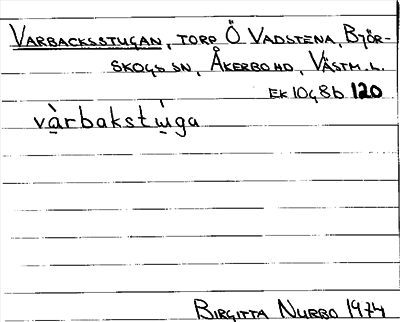 VARBACKSSTUGAN, TORP Ö VADSTENA, BJÖR-
SKOGS SN, ÅKERBO HD, VÄSTM. L.
EK 10G8b 120
vȧ̱rbakstu̱̇ga
BIRGITTA NURBO 1974